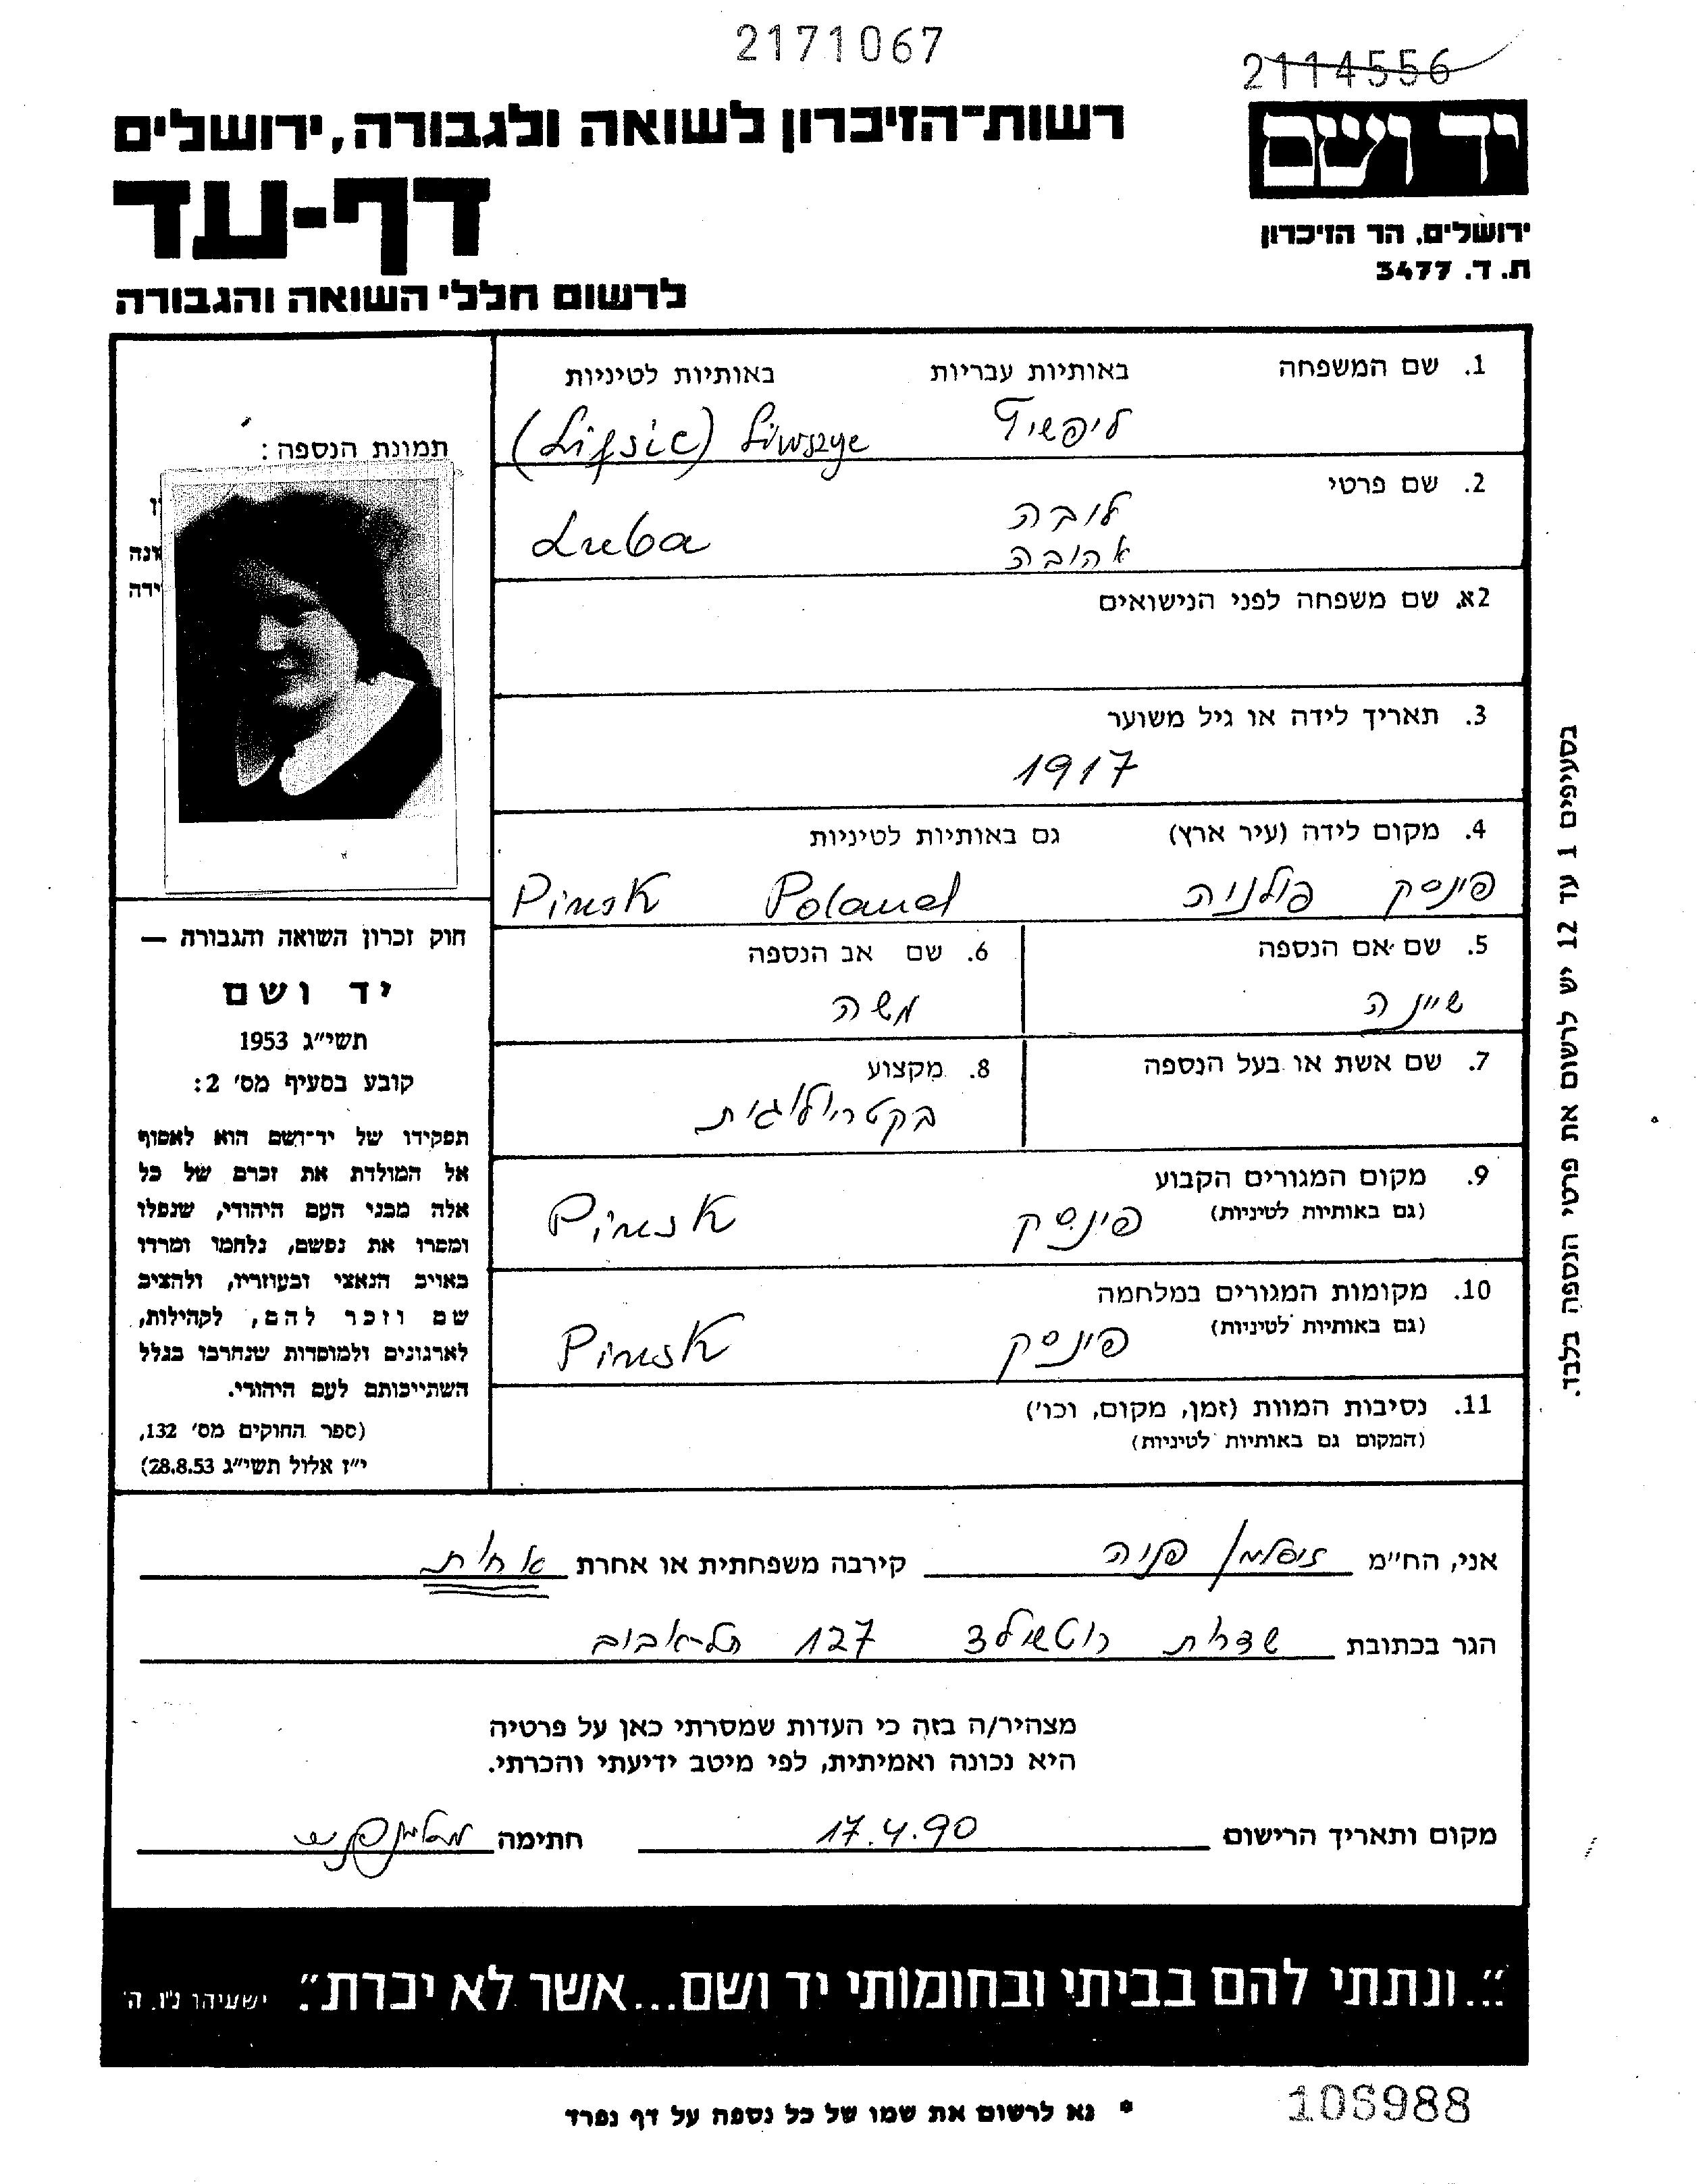 2171067
2114556
יד ושם
רשות-הזיכרון לשואה ולגבורה, ירושלים
דף-עד
ירושלים, הר הזיכרון
ת. ד. 3477
לרשום חללי השואה והגבורה
1. שם המשפחה באותיות עבריות באותיות לטיניות
ליפשיץ (Lifsic)
2. שם פרטי
לובה Luba
אהובה
2א. שם משפחה לפני הנישואים
3. תאריך לידה או גיל משוער
1917
4. מקום לידה (עיר ארץ) גם באותיות לטיניות
פינסק פולניה Pinsk Poland
5. שם אם הנספה
שיינה
6. שם אב הנספה
משה
7. שם אשת או בעל הנספה
8. מקצוע
בקטריולוגית
9. מקום המגורים הקבוע
(גם באותיות לטיניות)
פינסק Pinsk
10. מקומות המגורים במלחמה
(גם באותיות לטיניות)
פינסק Pinsk
11. נסיבות המוות (זמן, מקום, וכו')
(המקום גם באותיות לטיניות)
תמונת הנספה:
חוק זכרון השואה והגבורה —
יד ושם
תשי"ג 1953
קובע בסעיף מס' 2:
תפקידו של יד-ושם הוא לאסוף
אל המולדת את זכרם של כל
אלה מבני העם היהודי, שנפלו
ומסרו את נפשם, נלחמו ומרדו
באויב הנאצי ובעוזריו, ולהציב
שם וזכר להם, לקהילות,
לארגונים ולמוסדות שנחרבו בגלל
השתייכותם לעם היהודי.
(ספר החוקים מס' 132,
י"ז אלול תשי"ג 28.8.53)
בסעיפים 1 עד 12 יש לרשום את פרטי הנספה בלבד.
אני, הח"מ פניה קירבה משפחתית או אחרת אחות
הגר בכתובת שדרות רוטשילד 127 תל-אביב
מצהיר/ה בזה כי העדות שמסרתי כאן על פרטיה
היא נכונה ואמיתית, לפי מיטב ידיעתי והכרתי.
מקום ותאריך הרישום 17.4.90 חתימה
"...ונתתי להם בביתי ובחומותי יד ושם...אשר לא יכרת". ישעיהו נ"ו, ה'
* נא לרשום את שמו של כל נספה על דף נפרד
106988